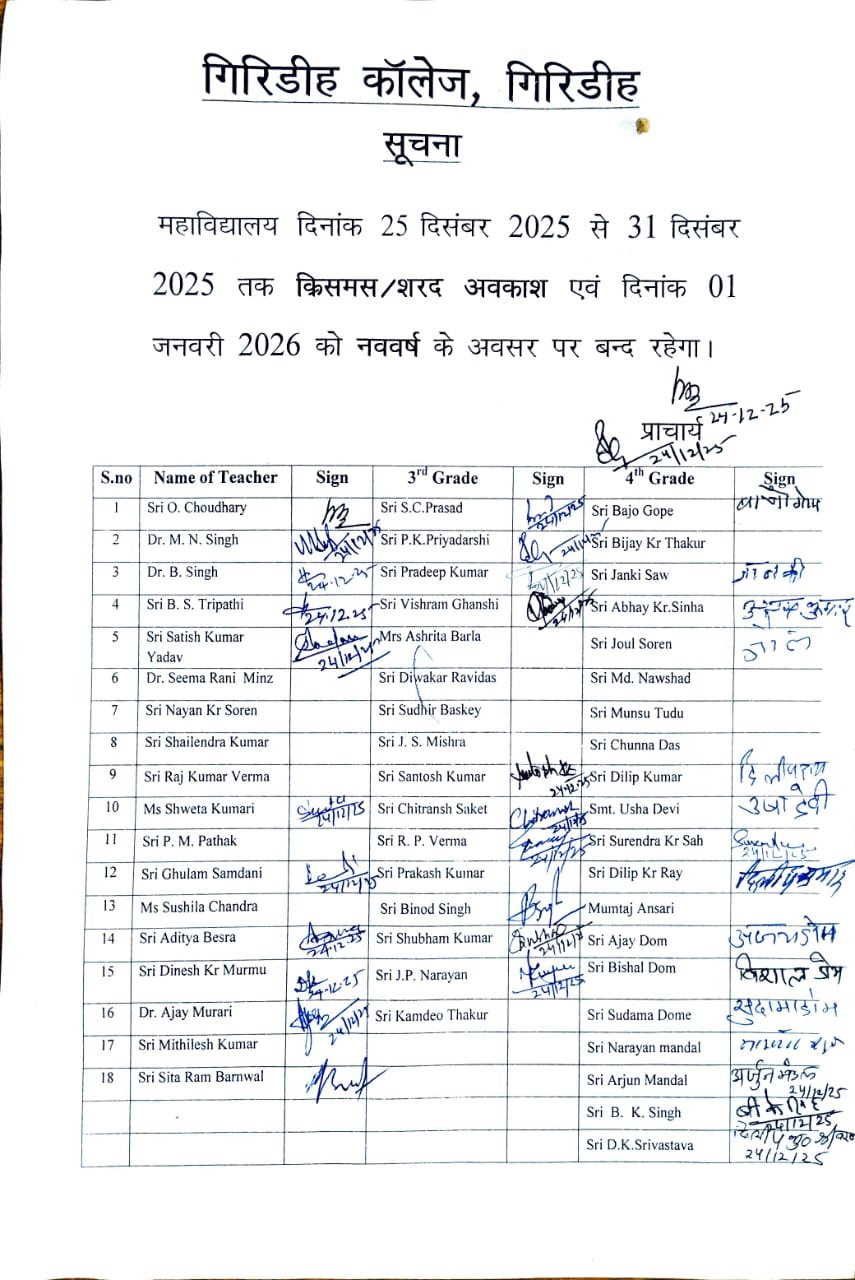 गिरिडीह कॉलेज, गिरिडीह
सूचना
महाविद्यालय दिनांक 25 दिसंबर 2025 से 31 दिसंबर
2025 तक क्रिसमस/शरद अवकाश एवं दिनांक 01
जनवरी 2026 को नववर्ष के अवसर पर बन्द रहेगा।
24-12-25
प्राचार्य
24/12/25
S.no Name of Teacher Sign 3rd Grade Sign 4th Grade Sign
1 Sri O. Choudhary Sri S.C.Prasad 24/12/25 Sri Bajo Gope बाजो गोप
2 Dr. M. N. Singh 24/12/25 Sri P.K.Priyadarshi 24/12/25 Sri Bijay Kr Thakur
3 Dr. B. Singh 24.12.25 Sri Pradeep Kumar 24/12/25 Sri Janki Saw जानकी
4 Sri B. S. Tripathi 24.12.25 Sri Vishram Ghanshi 24/12/25 Sri Abhay Kr.Sinha
5 Sri Satish Kumar Yadav 24/12/25 Mrs Ashrita Barla Sri Joul Soren
6 Dr. Seema Rani Minz Sri Diwakar Ravidas Sri Md. Nawshad
7 Sri Nayan Kr Soren Sri Sudhir Baskey Sri Munsu Tudu
8 Sri Shailendra Kumar Sri J. S. Mishra Sri Chunna Das
9 Sri Raj Kumar Verma Sri Santosh Kumar 24.12.25 Sri Dilip Kumar
10 Ms Shweta Kumari 24/12/25 Sri Chitransh Saket 24/12/25 Smt. Usha Devi उषा देवी
11 Sri P. M. Pathak Sri R. P. Verma 24/12/25 Sri Surendra Kr Sah 24/12/25
12 Sri Ghulam Samdani 24/12/25 Sri Prakash Kumar Sri Dilip Kr Ray
13 Ms Sushila Chandra Sri Binod Singh Mumtaj Ansari
14 Sri Aditya Besra 24.12.25 Sri Shubham Kumar 24/12/25 Sri Ajay Dom अजय डोम
15 Sri Dinesh Kr Murmu 24.12.25 Sri J.P. Narayan 24/12/25 Sri Bishal Dom विशाल डोम
16 Dr. Ajay Murari 24/12/25 Sri Kamdeo Thakur Sri Sudama Dome सुदामा डोम
17 Sri Mithilesh Kumar Sri Narayan mandal
18 Sri Sita Ram Barnwal Sri Arjun Mandal अर्जुन मंडल 24/12/25
Sri B. K. Singh 24/12/25
Sri D.K.Srivastava 24/12/25